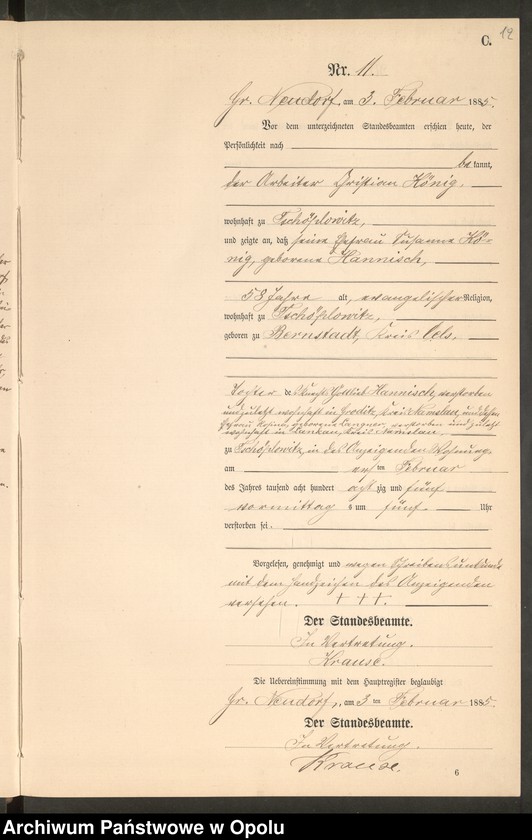 12
C.
Nr. 11.
Gr. Neudorf, am 3. Februar 1885.
Vor dem unterzeichneten Standesbeamten erschien heute, der
Persönlichkeit nach
bekannt,
der Arbeiter Christian König,
wohnhaft zu Tschöplowitz,
und zeigte an, daß seine Ehefrau Susanna Kö-
nig, geborene Hannisch,
53 Jahre alt, evangelischer Religion,
wohnhaft zu Tschöplowitz,
geboren zu Bernstadt, Kreis Oels,
Tochter des Knechts Gottlieb Hannisch, verstorben
und zuletzt wohnhaft in Kreis Namslau, und dessen
Ehefrau Rosina, geborene Langner, verstorben und zuletzt
wohnhaft in Kreis Namslau,
zu Tschöplowitz, in des Anzeigenden Wohnung,
am ersten Februar
des Jahres tausend acht hundert achtzig und fünf
vormittags um fünf Uhr
verstorben sei.
Vorgelesen, genehmigt und wegen Schreibensunkunde
mit dem Handzeichen des Anzeigenden
versehen. +++.
Der Standesbeamte.
In Vertretung.
Krause.
Die Uebereinstimmung mit dem Hauptregister beglaubigt
Gr. Neudorf, am 3ten Februar 1885.
Der Standesbeamte.
In Vertretung.
Krause.
6
Archiwum Państwowe w Opolu